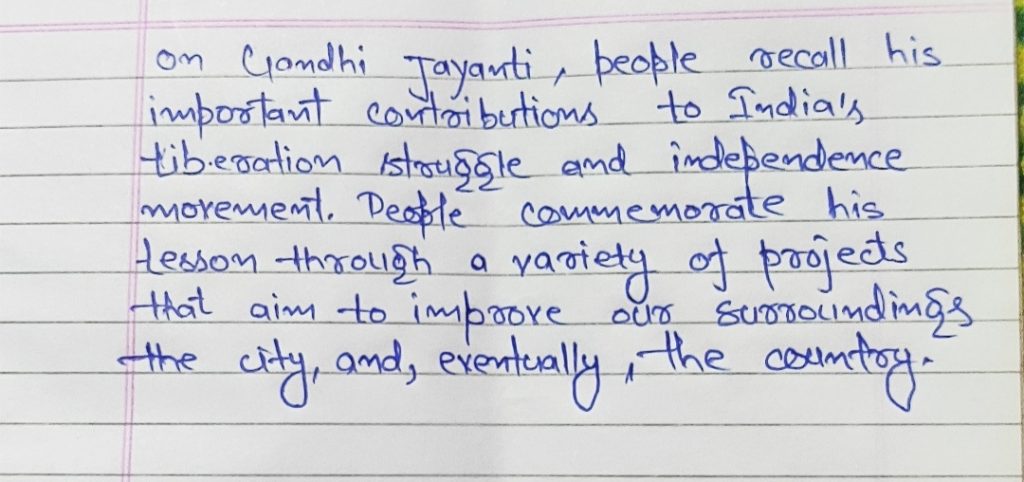 on Gandhi Jayanti, people recall his
important contributions to India's
liberation struggle and independence
movement. People commemorate his
lesson through a variety of projects
that aim to improve our surroundings
the city, and, eventually, the country.